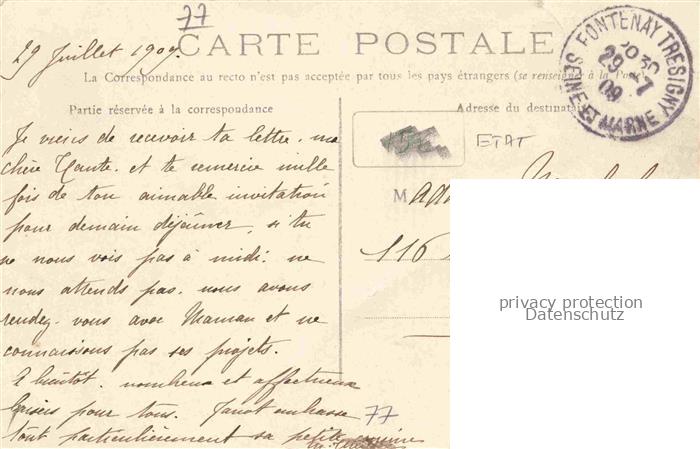 77
29 Juillet 1909.
CARTE POSTALE
La Correspondance au recto n'est pas acceptée par tous les pays étrangers (se renseigner à la Poste)
FONTENAY-TRESIGNY
20 30
29 - 7
09
SEINE ET MARNE
Partie réservée à la correspondance
Adresse du destinat
ETAT
Je viens de recevoir ta lettre, ma
chère Tante, et te remercie mille
fois de ton aimable invitation
pour demain déjeûner, si tu
ne nous vois pas à midi, ne
nous attends pas, nous avons
rendez-vous avec Maman et ne
connaissons pas ses projets.
A bientôt, nombreux et affectueux
baisers pour tous. Janot embrasse
tout particulièrement sa petite cousine
77
Mada
116
privacy protection
Datenschutz